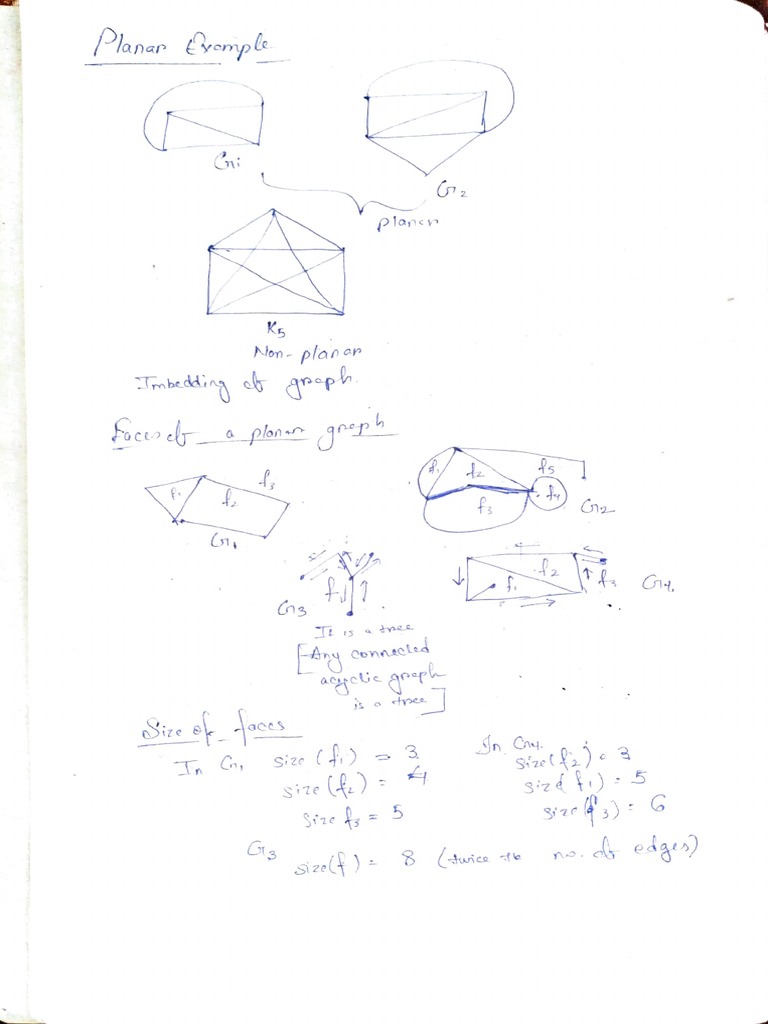 Planar Example
G1
G2
planar
K5
Non-planar
Imbedding of graph.
Faces of a planar graph
f1 f2 f3
G1
f1 f2 f5
f3 f4
G2
f
G3
f1 f2 f3
G4.
It is a tree
[Any connected
acyclic graph
is a tree]
Size of faces
In G1 size (f1) = 3
size (f2) = 4
size f3 = 5
In G4.
size(f2) = 3
size(f1) = 5
size(f3) = 6
G3 size(f) = 8 (twice the no. of edges)